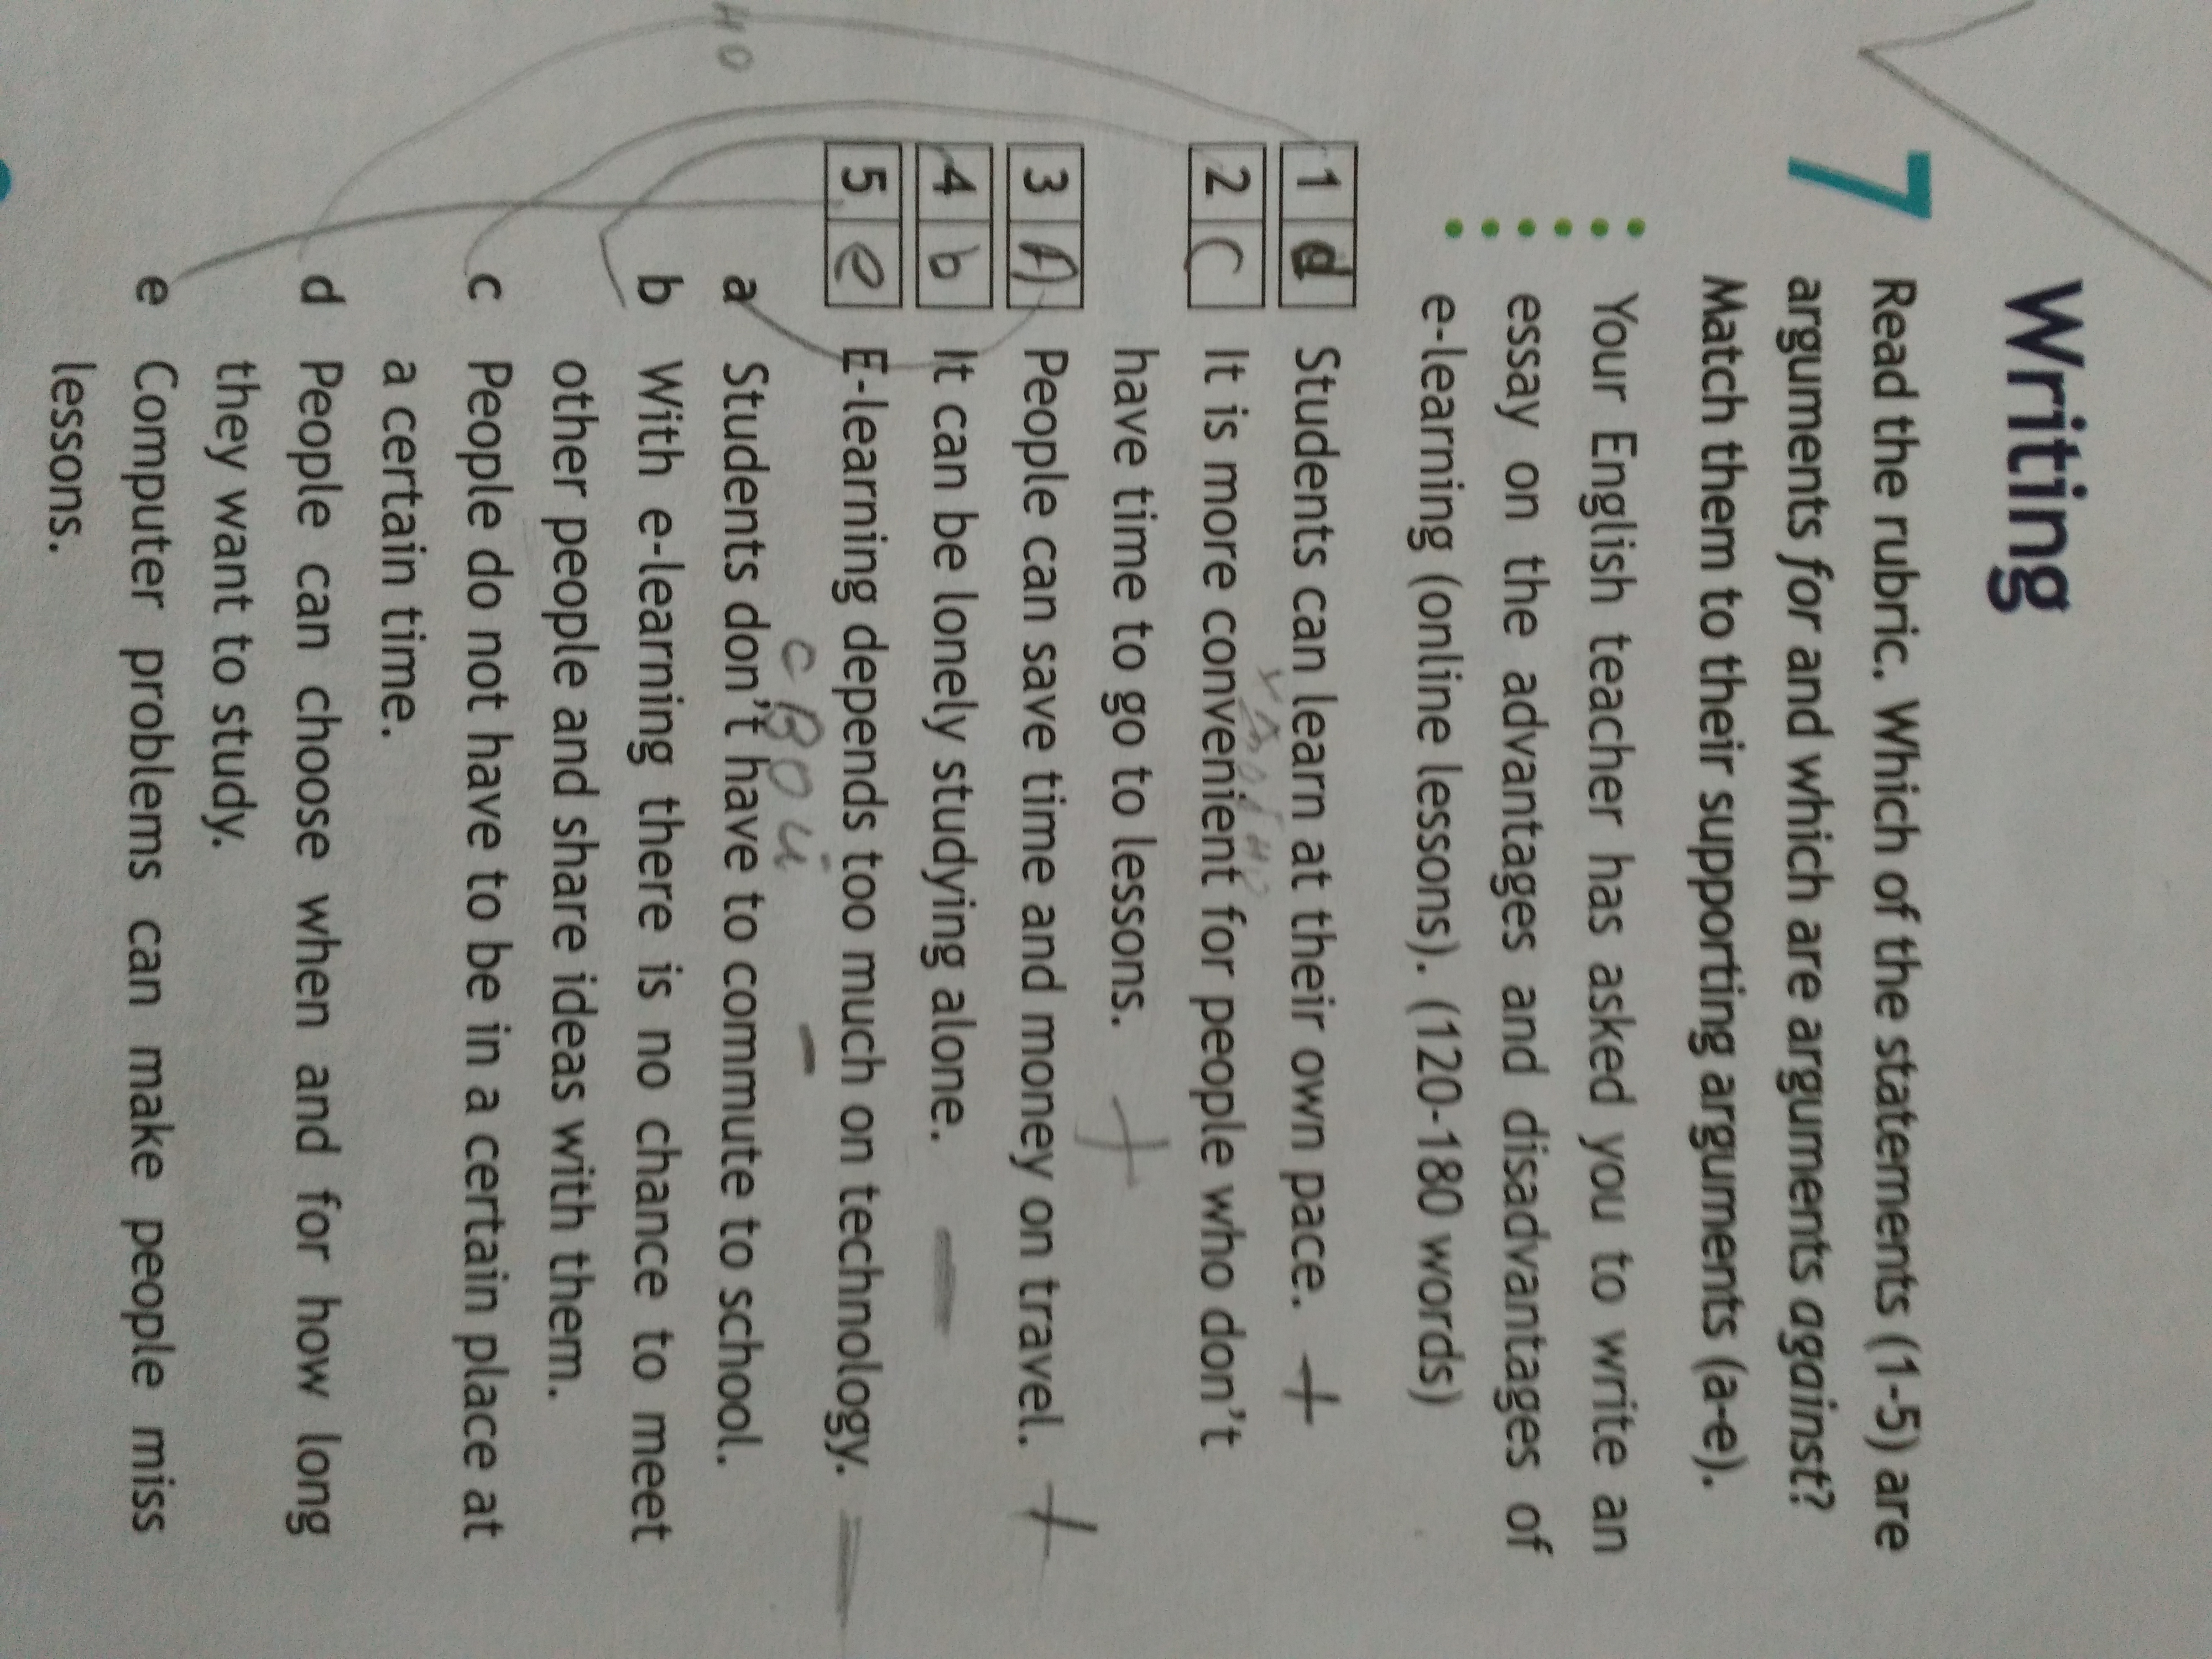 Writing
7 Read the rubric. Which of the statements (1-5) are
arguments for and which are arguments against?
Match them to their supporting arguments (a-e).
Your English teacher has asked you to write an
essay on the advantages and disadvantages of
e-learning (online lessons). (120-180 words)
1 d Students can learn at their own pace. +
2 c It is more convenient for people who don't
have time to go to lessons. +
3 A People can save time and money on travel. +
4 b It can be lonely studying alone. –
5 e E-learning depends too much on technology. –
свой –
a Students don't have to commute to school.
но
b With e-learning there is no chance to meet
other people and share ideas with them.
c People do not have to be in a certain place at
a certain time.
d People can choose when and for how long
they want to study.
e Computer problems can make people miss
lessons.